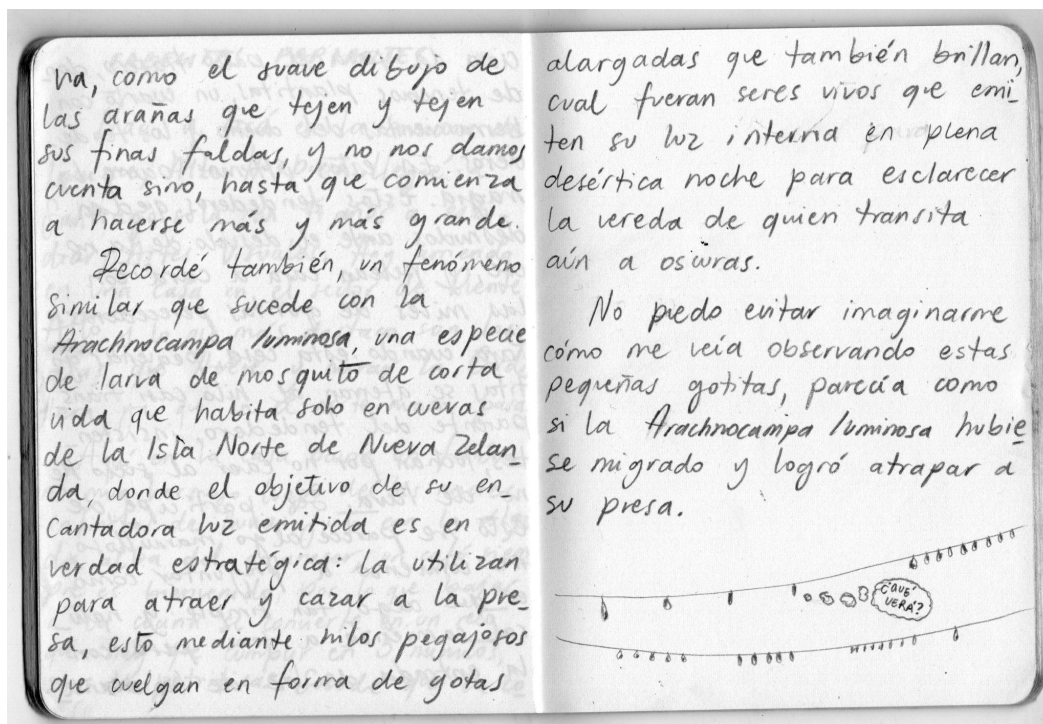 na, como el suave dibujo de
las arañas que tejen y tejen
sus finas faldas, y no nos damos
cuenta sino, hasta que comienza
a haverse más y más grande.
Recordé también, un fenómeno
similar que sucede con la
Arachnocampa luminosa, una especie
de larva de mosquito de corta
vida que habita solo en cuevas
de la Isla Norte de Nueva Zelan_
da, donde el objetivo de su en_
cantadora luz emitida es en
verdad estratégica: la utilizan
para atraer y cazar a la pre_
sa, esto mediante hilos pegajosos
que cuelgan en forma de gotas
alargadas que también brillan,
cual fueran seres vivos que emi_
ten su luz interna en plena
desértica noche para esclarecer
la vereda de quien transita
aún a oscuras.
No piedo evitar imaginarme
cómo me veía observando estas
pequeñas gotitas, parecía como
si la Arachnocampa luminosa hubie_
se migrado y logró atrapar a
su presa.
¿QUÉ
VERÁ?